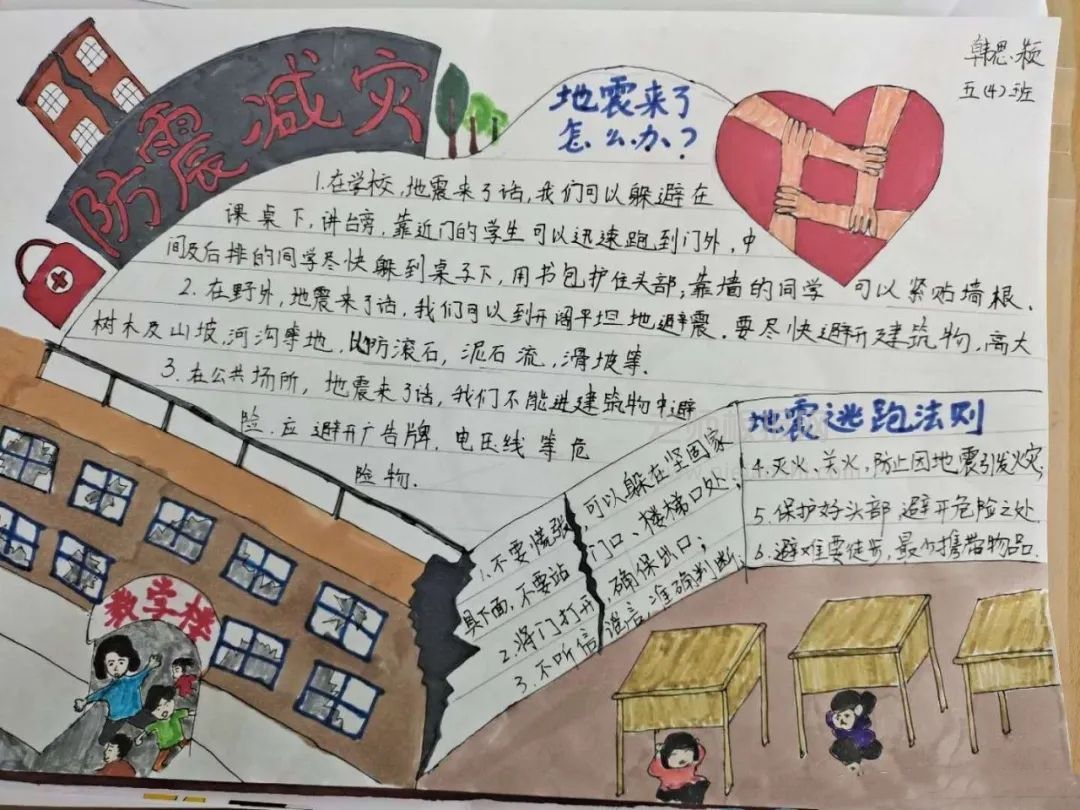 防震减灾
韩思颖
五(4)班
地震来了
怎么办?
1.在学校,地震来了话,我们可以躲避在
课桌下,讲台旁,靠近门的学生可以迅速跑到门外,中
间及后排的同学尽快躲到桌子下,用书包护住头部;靠墙的同学 可以紧贴墙根、
2.在野外,地震来了话,我们可以到开阔平坦地避震.要尽快避开建筑物,高大
树木及山坡,河沟等地,以防滚石,泥石流,滑坡等.
3.在公共场所,地震来了话,我们不能进建筑物中避
险.应避开广告牌,电压线等危
险物.
教学楼
1.不要慌张,可以躲在坚固家
具下面,不要站门口、楼梯口处;
2.将门打开,确保出口;
3.不听信谣言,准确判断;
地震逃跑法则
4.灭火、关火,防止因地震引发火灾;
5.保护好头部 避开危险之处
6.避难要徒步,最少携带物品.